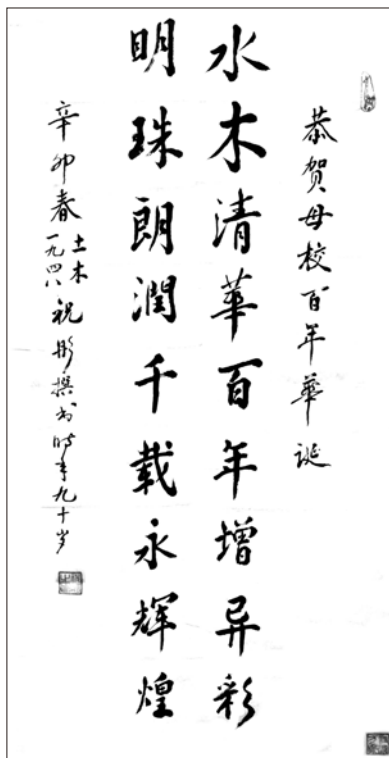 恭贺母校百年華诞
水木清華百年增异彩
明珠朗潤千载永辉煌
辛卯春
土木
一九四八
祝彤撰书时年九十岁